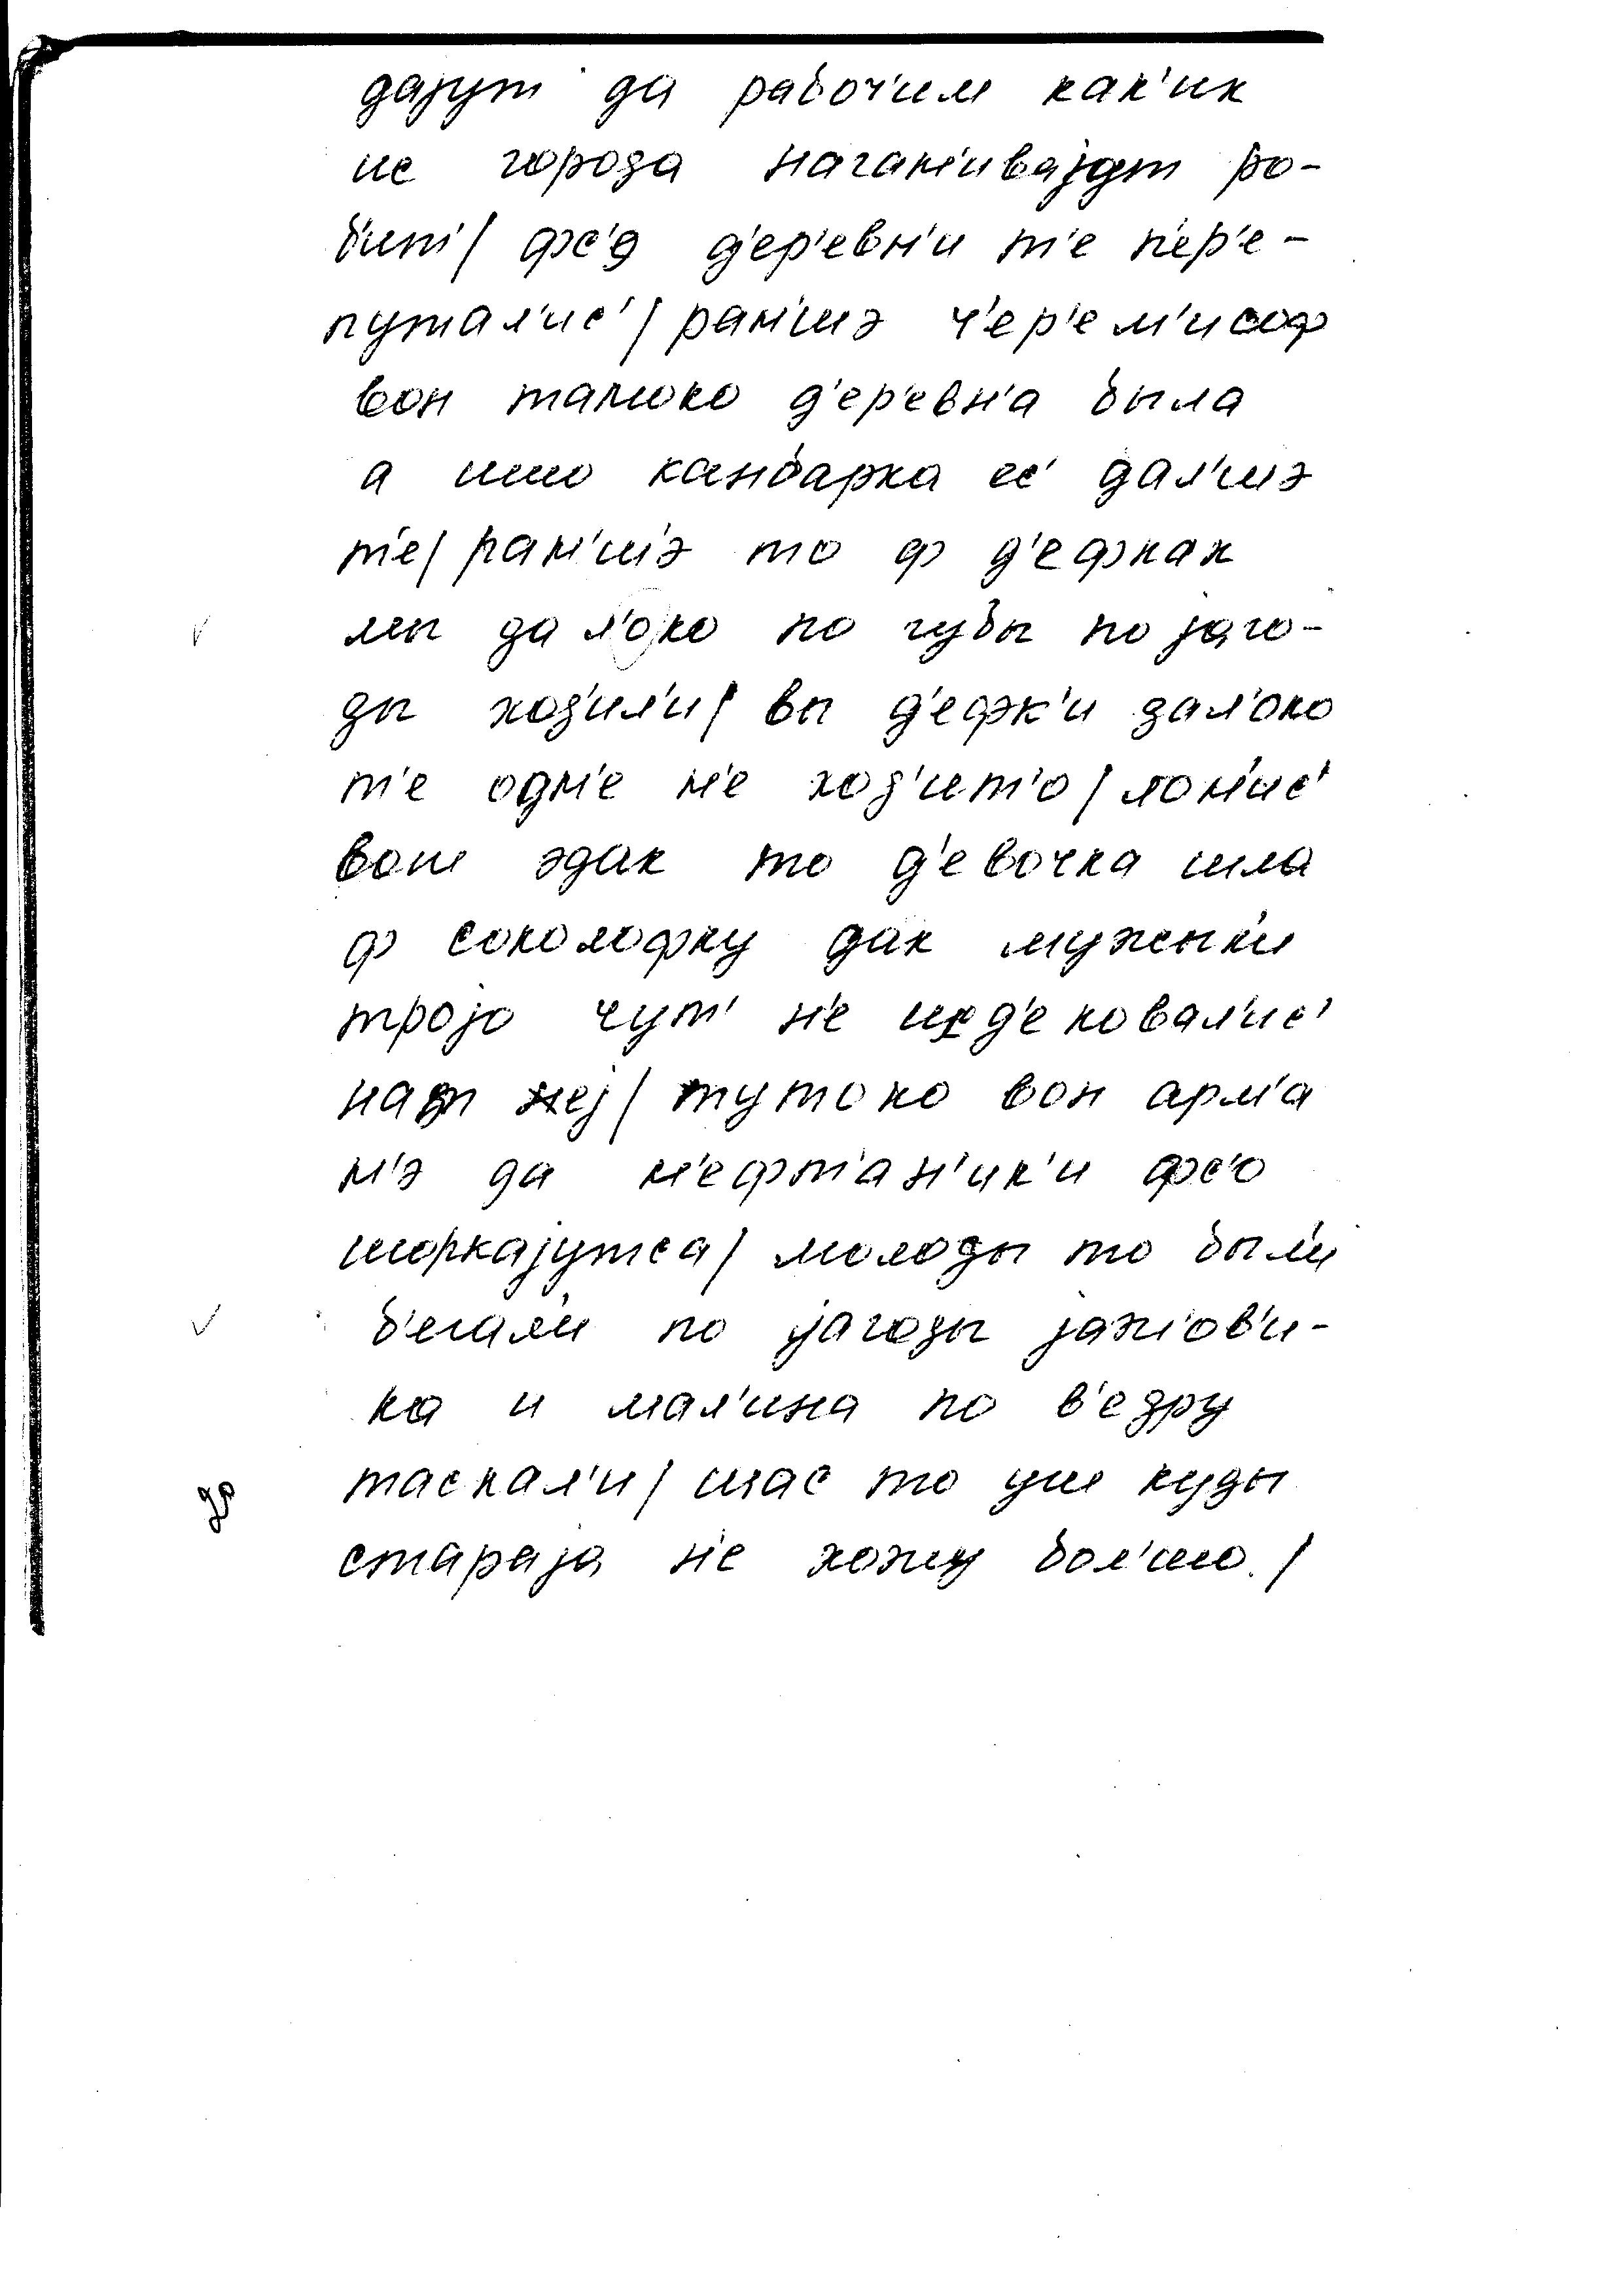 дајут да рабоч'им как'ик
ис города наган'ивајэт ро-
б'ит'/ фс'э д'ер'евн'и т'е п'ер'е-
путал'ис'/ ран'шэ ч'ер'ем'исоф
вон тамоко д'ер'евн'а была
а што канбарка ес' дал'шэ
т'е/ ран'шэ то ф д'ефках
мы дал'око по губы по јаго-
ды ход'ил'и/ вы д'ефк'и дал'око
т'е одн'е н'е ход'ит'о/ лон'ис'
вош эдак то д'евочка шла
ф соколофку дак мужык'и
тројо чут' н'е изд'ековал'ис'
над неј/ тутоко вон арм'а
н'э да н'ефт'ан'ик'и фс'о
шоркајутса/ молоды то был'и
б'егал'и по јагоды јажов'и-
ка и мал'ина по в'едру
таскал'и/ шас то уш куды
стараја н'е хожу бол'шо./